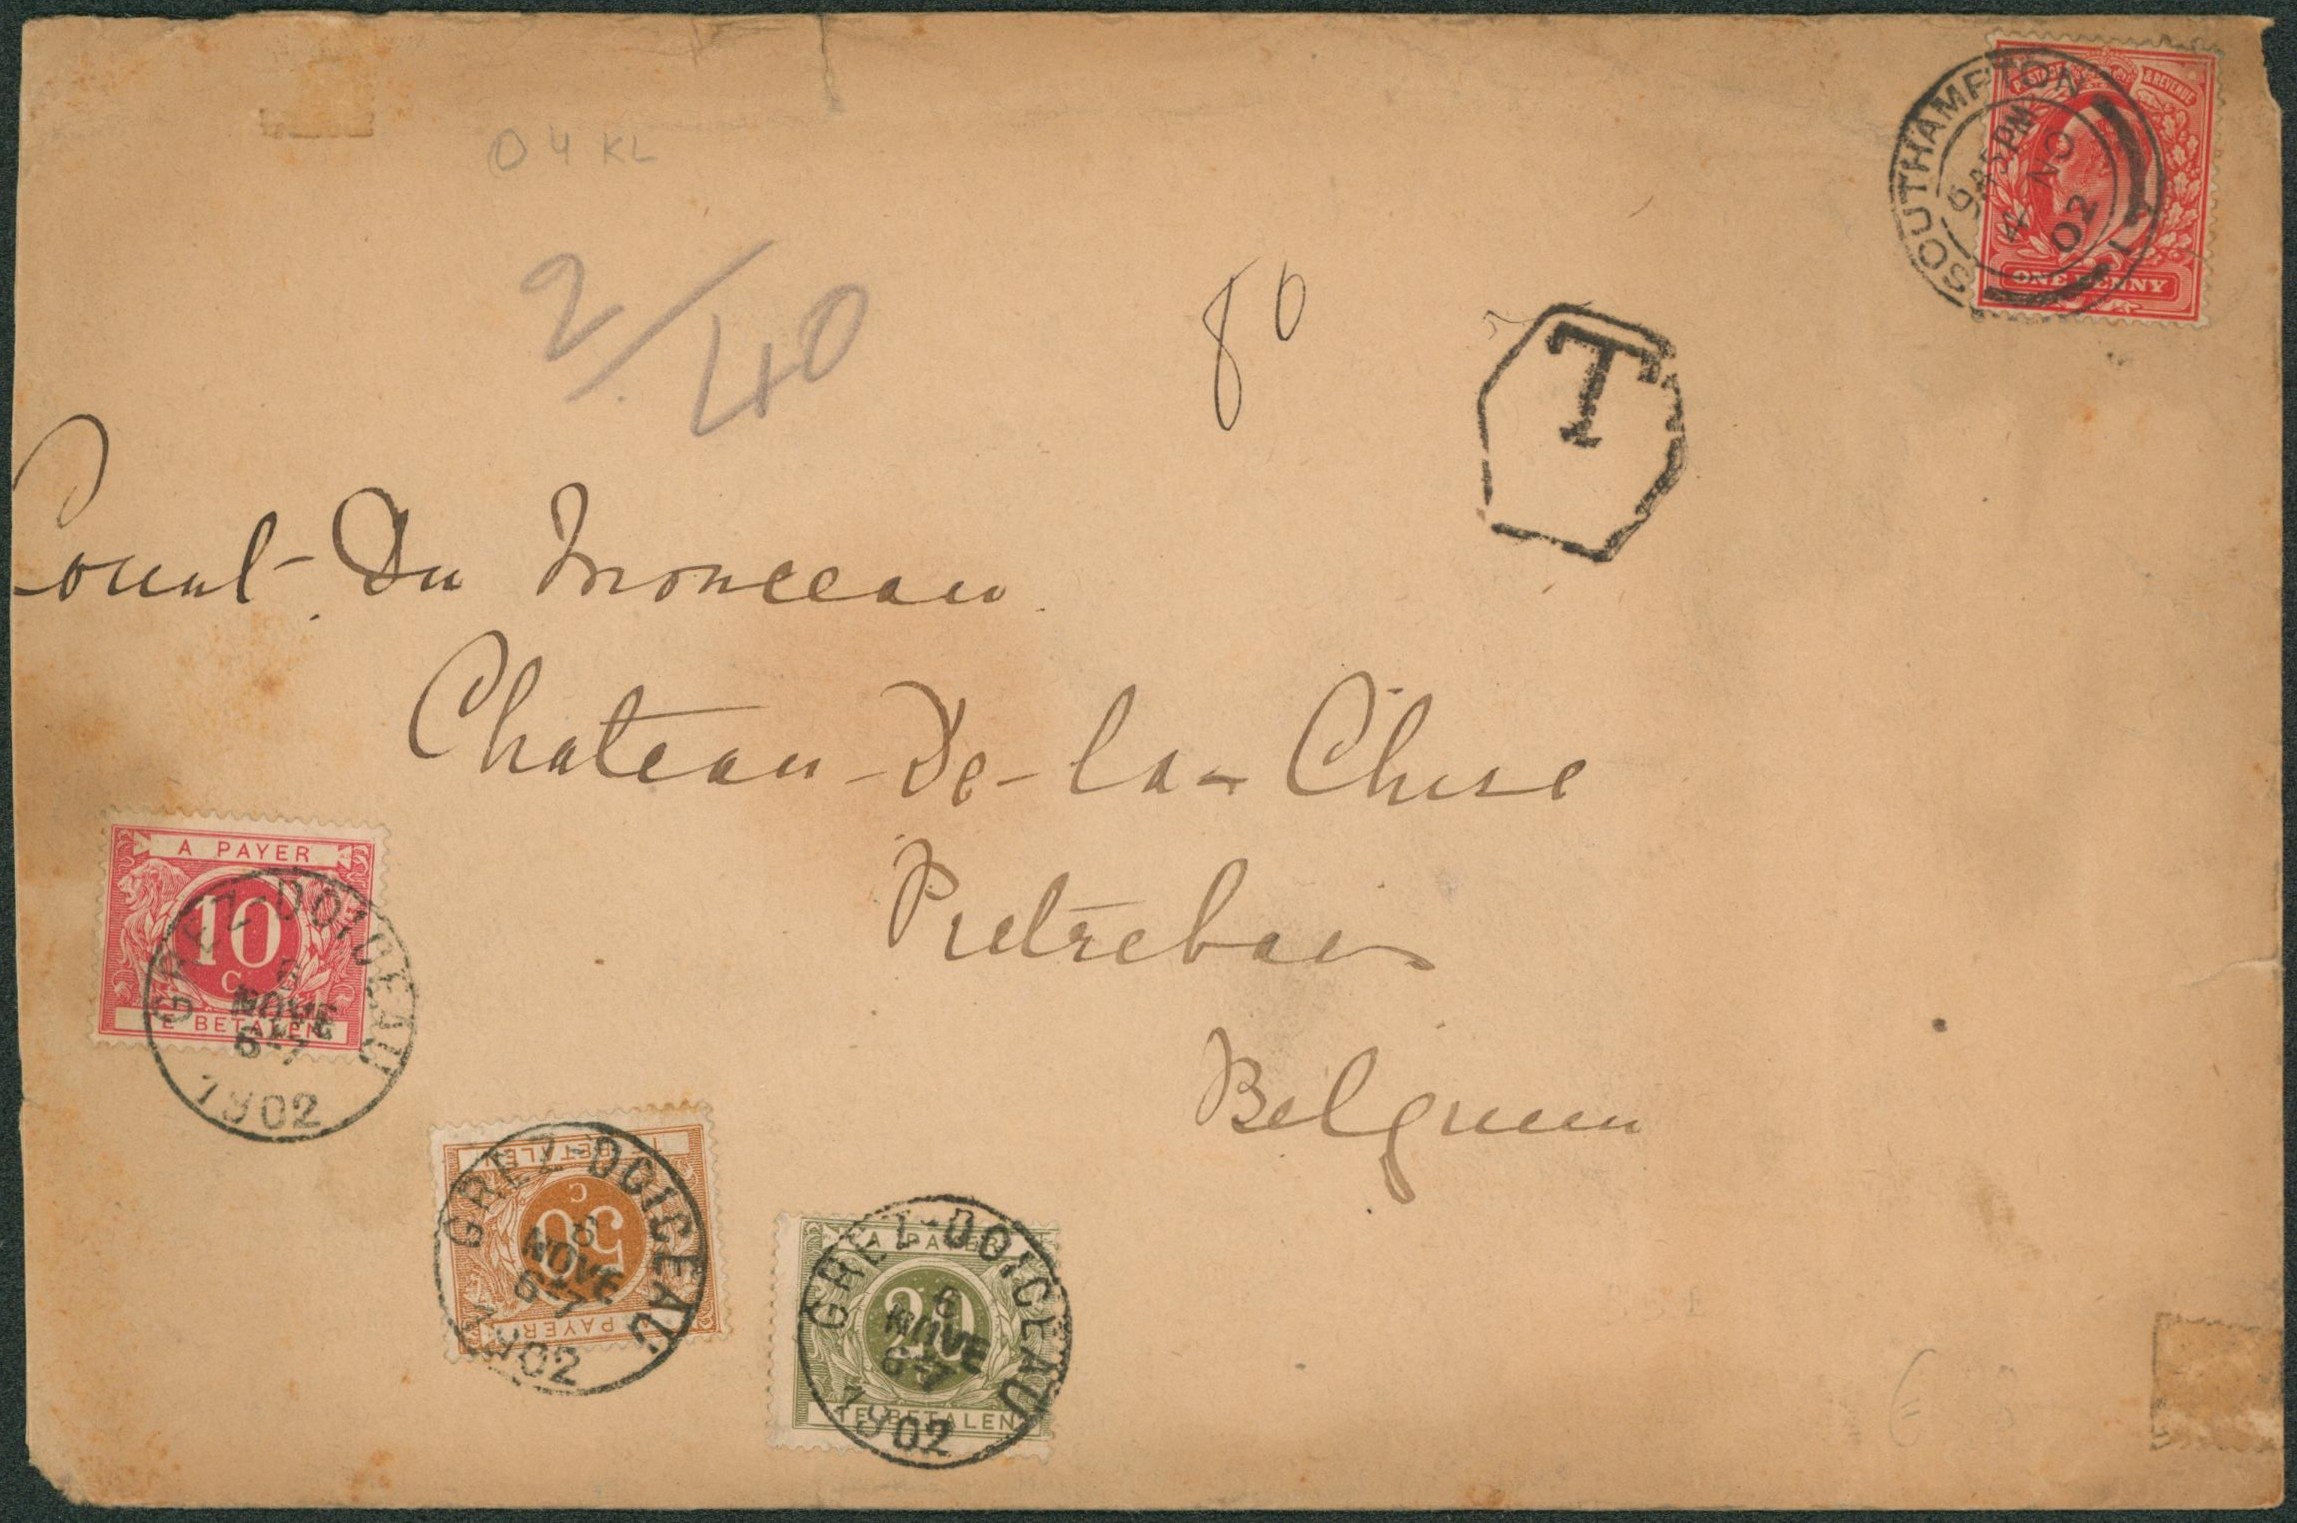 O 4 KL
2/40
80
T
POSTAGE & REVENUE
ONE PENNY
SOUTHAMPTON
9.45 PM
4 NO
02
Count Du Monceau
Chateau-De-la-Chise
Pietrebais
Belgium
A PAYER
10
C
TE BETALEN
GREZ-DOICEAU
6
NOVE
6-7
1902
TE BETALEN
C
50
A PAYER
GREZ-DOICEAU
6
NOVE
6-7
1902
A PAYER
20
TE BETALEN
GREZ-DOICEAU
6
NOVE
6-7
1902